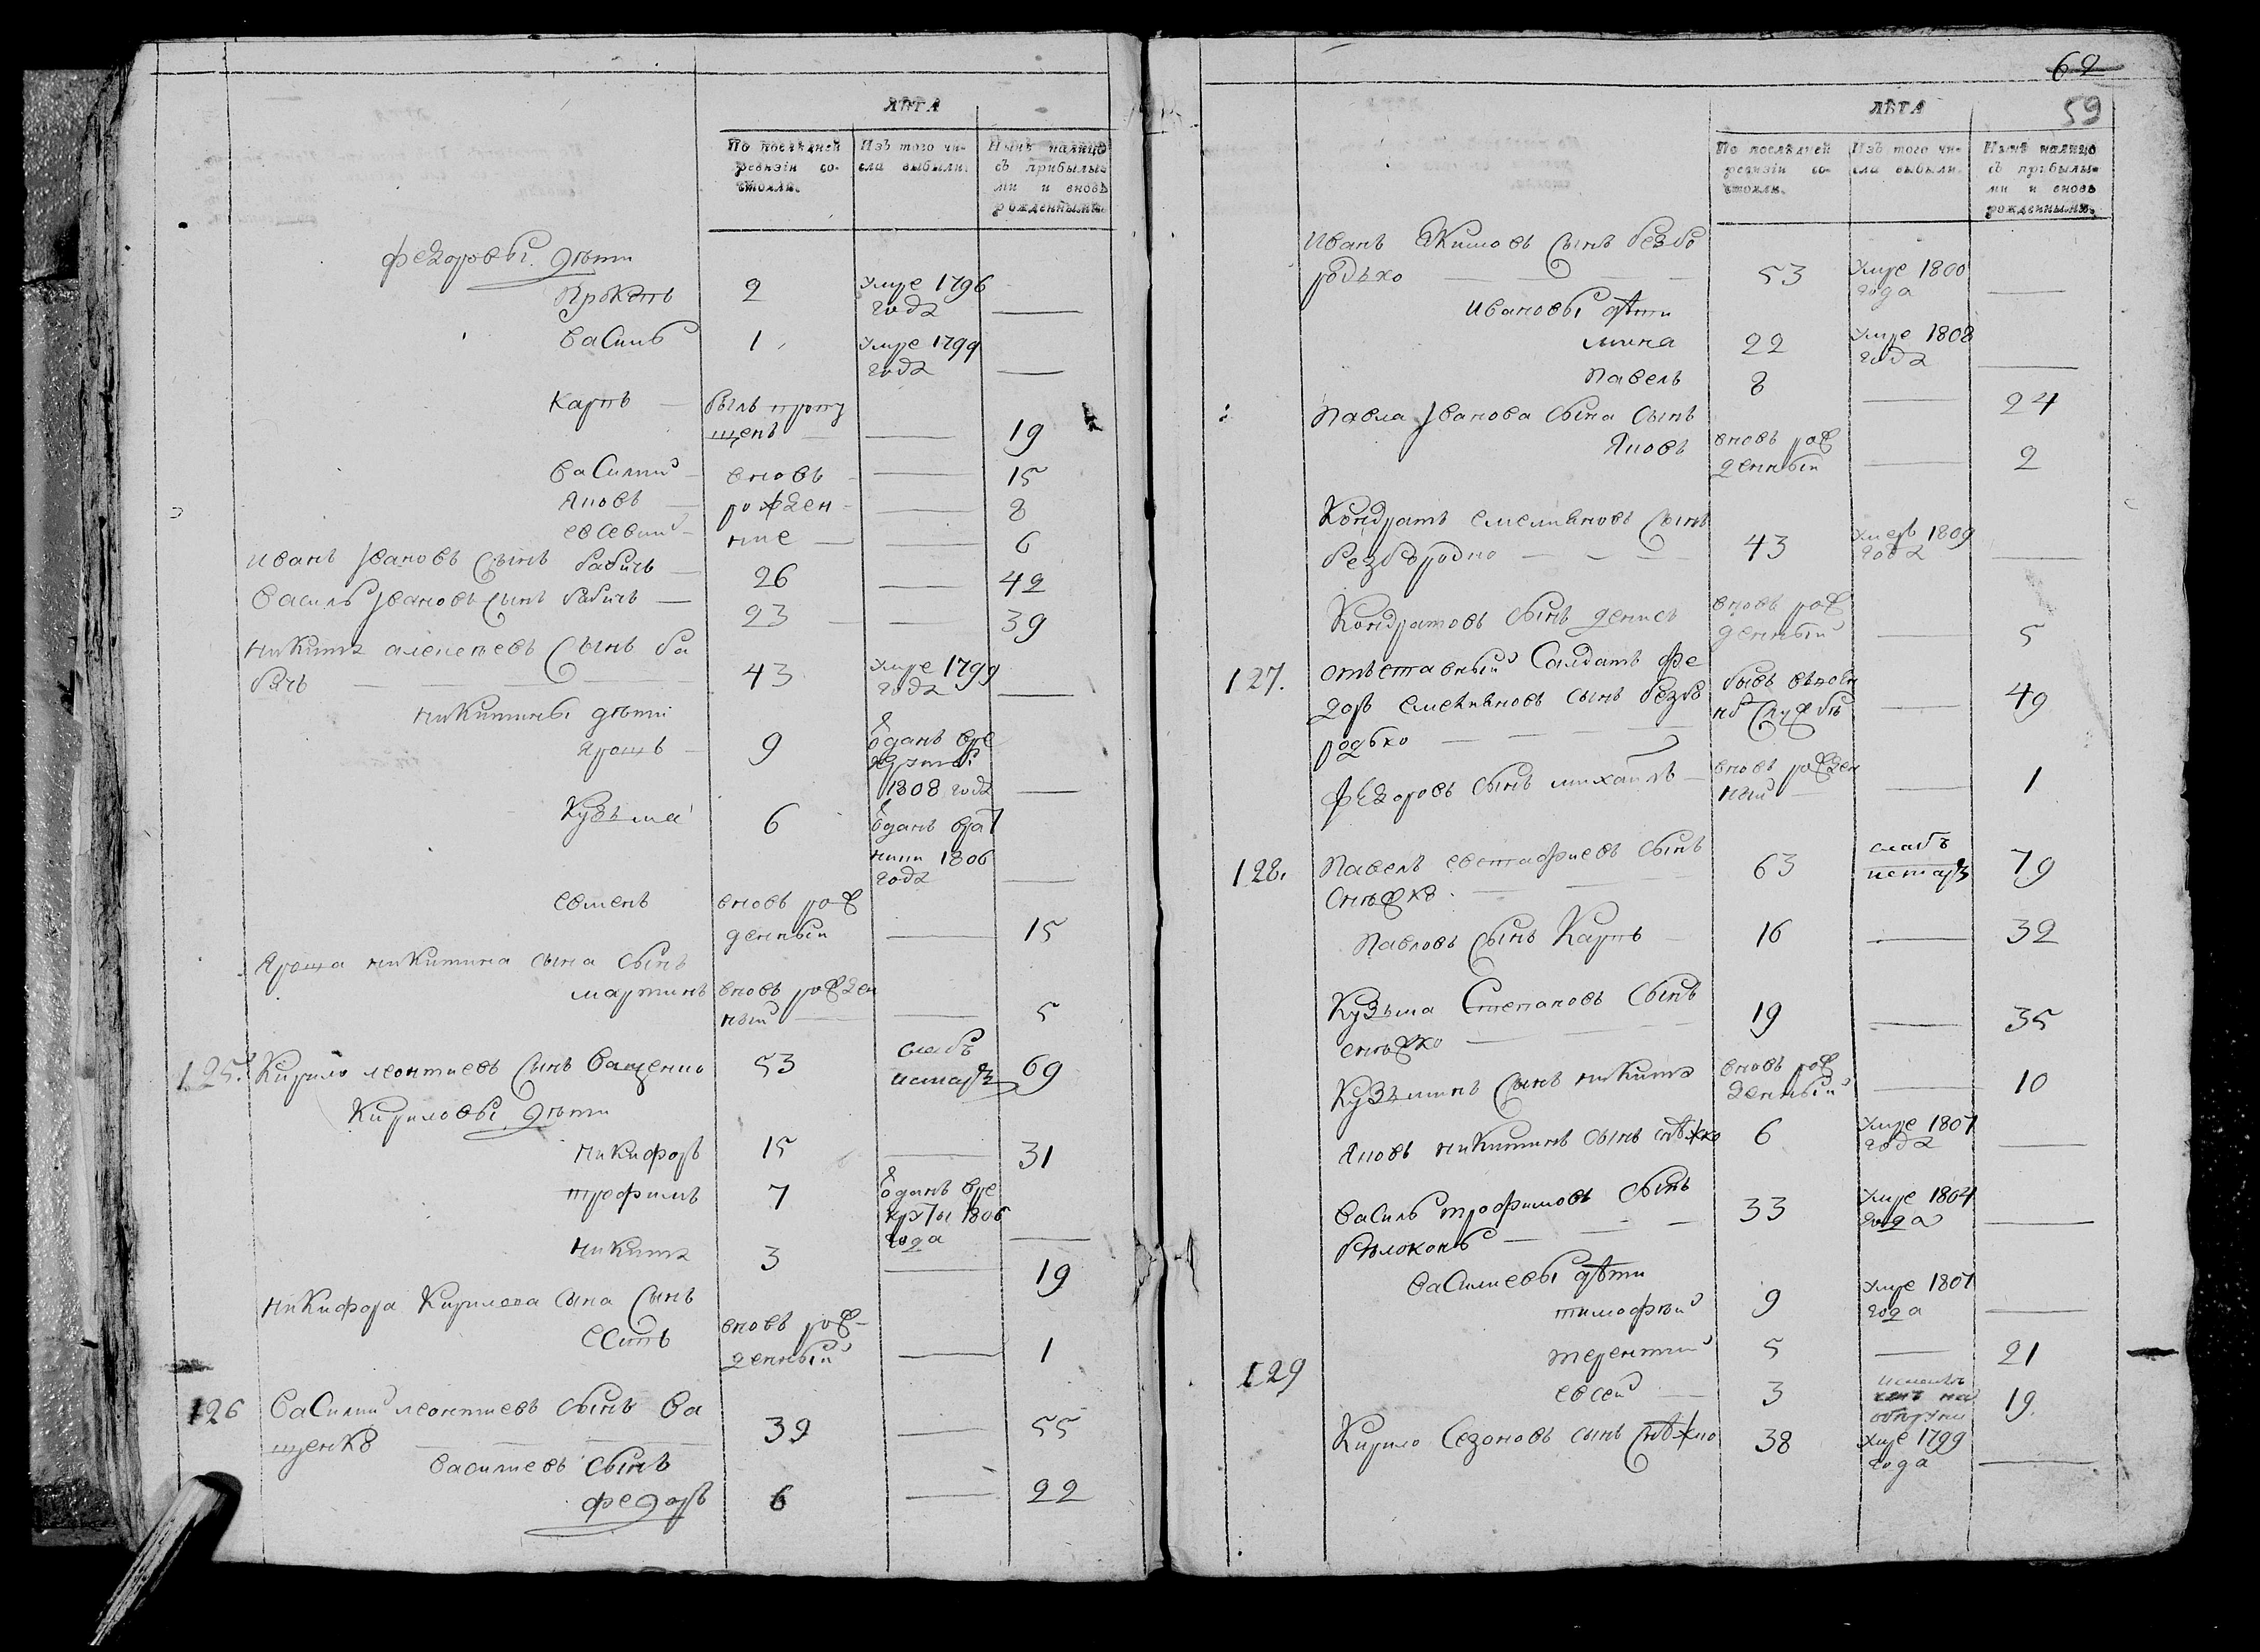 ЛѢТА
По послѣдней ревизіи со-стояли.
Изъ того чи-сла выбыли.
Нынѣ налицо съ прибылы-ми и вновь рожденными.
федоровы дѣти
Прокопъ 2 умре 1796
года —
василь 1 умре 1799
года —
Карпъ — былъ пропу
щенъ — — 19
василий — вновь — 15
Яковъ — рожден — 8
евсевий — ние — — 6
иванъ Iвановъ сынъ бабичь — 26 — 42
василь Iвановъ сынъ бабичь — 23 — 39
никита алексеевъ сынъ ба
бичь — 43 умре 1799
года —
никитины дѣти
Ярошъ — 9 отданъ вре
круты
1808 года —
Кузьма 6 отданъ врат
ники 1806
года —
евменъ вновь рож
денный — 15
Яроша никитина сына сынъ
мартинъ вновь рожден
ный — — 5
125. Кирило леонтиевъ сынъ ващенко 53 слабъ
истаръ 69
Кириловы дѣти
никифоръ 15 — 31
трофимъ 7 отданъ вре
круты 1806
года —
никита 3 — 19
никифора Кирилова сына сынъ
есипъ вновь рож-
денный — 1
126 василий леонтиевъ сынъ ва
щенко — 39 — 55
василиевъ сынъ
федоръ 6 — 22
62
59
ЛѢТА
По послѣдней ревизіи со-стояли.
Изъ того чи-сла выбыли.
Нынѣ налицо съ прибылы-ми и вновь рожденными.
иванъ Якимовъ сынъ безбо
родько — 53 умре 1800
года —
ивановы дѣти
мина 22 умре 1808
года —
павелъ 8 — 24
павла Iванова сына сынъ
Яковъ вновь рож
денный — 2
Кондратъ емелияновъ сынъ
безбородко — 43 умеръ 1809
года —
Кондратовъ сынъ денисъ вновь рож
денный — 5
127. отъставный салдатъ фе
доръ емелияновъ сынъ безбо
родько — бывъ въвоен
ной службѣ — 49
федоровъ сынъ михайлъ — вновь рожден
ный — — 1
128. павелъ евстафиевъ сынъ
снѣжко — 63 слабъ
истаръ 79
павловъ сынъ Карпъ — 16 — 32
Кузьма Степановъ сынъ
снѣжко — 19 — 35
Кузьминъ сынъ никита вновь рож
денный — 10
Яковъ никитинъ сынъ снѣжко 6 умре 1801
года —
василь трофимовъ сынъ
бѣлоконь — 33 умре 1804
года —
василиевы дѣти
тимофѣй 9 умре 1801
года —
терентий 5 — 21
129 евсей — 3 19
Кирило Сезоновъ сынъ снѣжко 38 умре 1799
года —